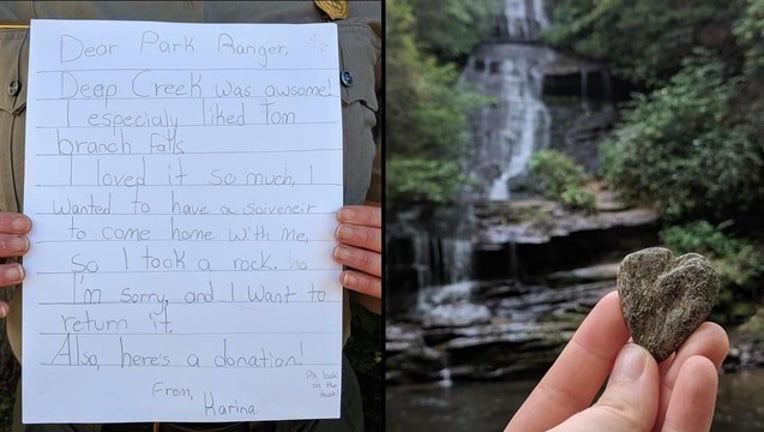 Dear Park Ranger,
Deep Creek was awsome!
I especialy liked tom
branch falls.
I loved it so much, I
wanted to have a soiveneir
to come home with me,
so I took a rock.
I'm sorry, and I want to
return it.
Also, here's a donation!
From,
Karina
Ps. look
on the
back!